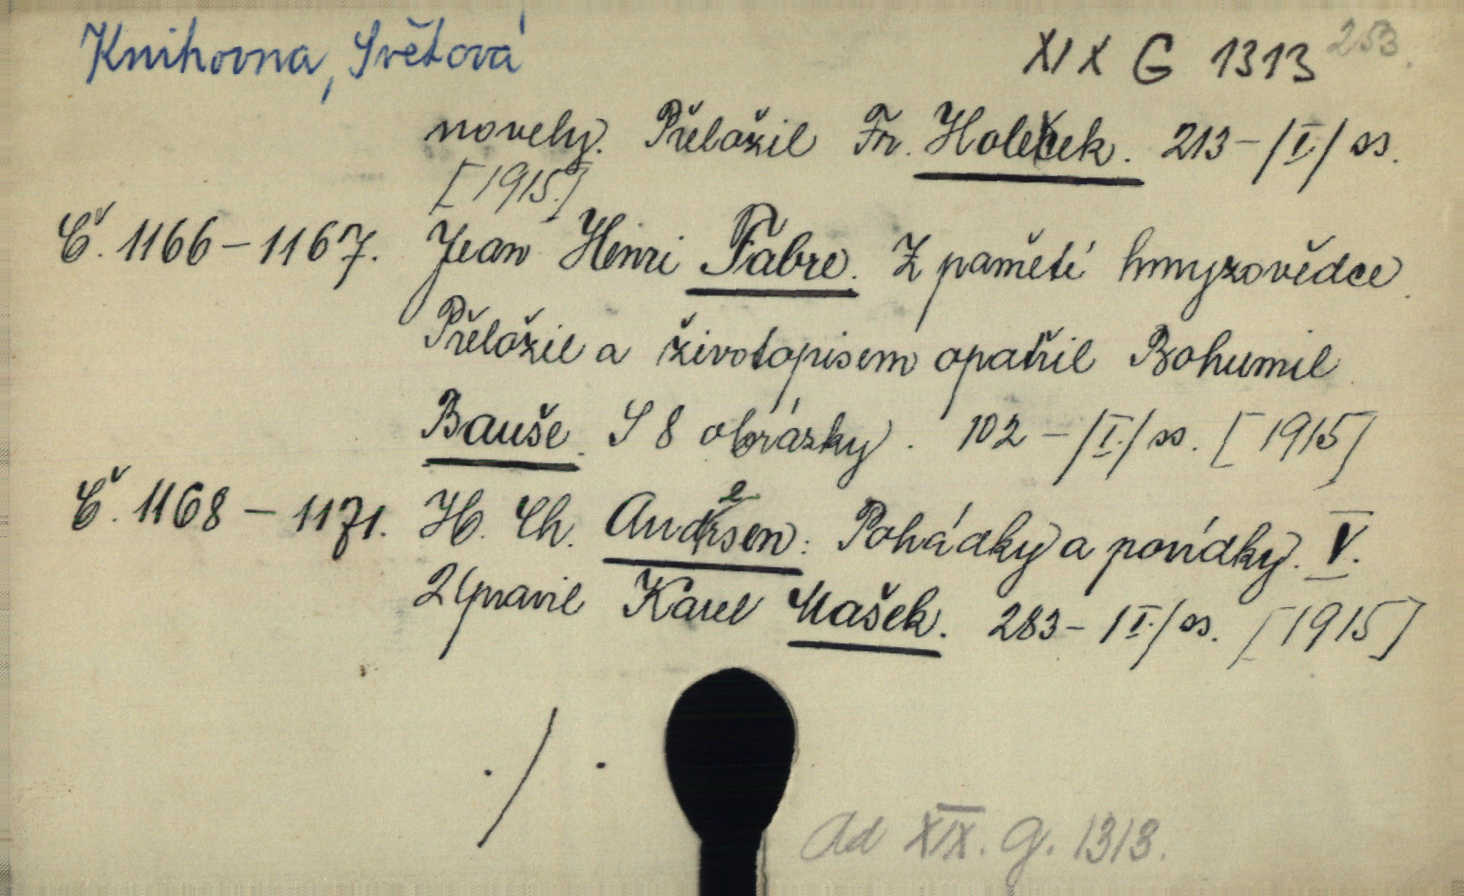 Knihovna, Světová XIX G 1313 253.
novely. Přeložil Fr. Holeček. 213-/I./ ss.
[1915.]
Č. 1166-1167. Jean Henri Fabre. Z pamětí hmyzovědce.
Přeložil a životopisem opatřil Bohumil
Bauše. S 8 obrázky. 102-/I./ ss. [1915]
Č. 1168-1171. H. Ch. Andersen: Pohádky a povídky. V.
Upravil Karel Mašek. 283-/I./ ss. [1915]
./.
Ad XIX. G. 1313.